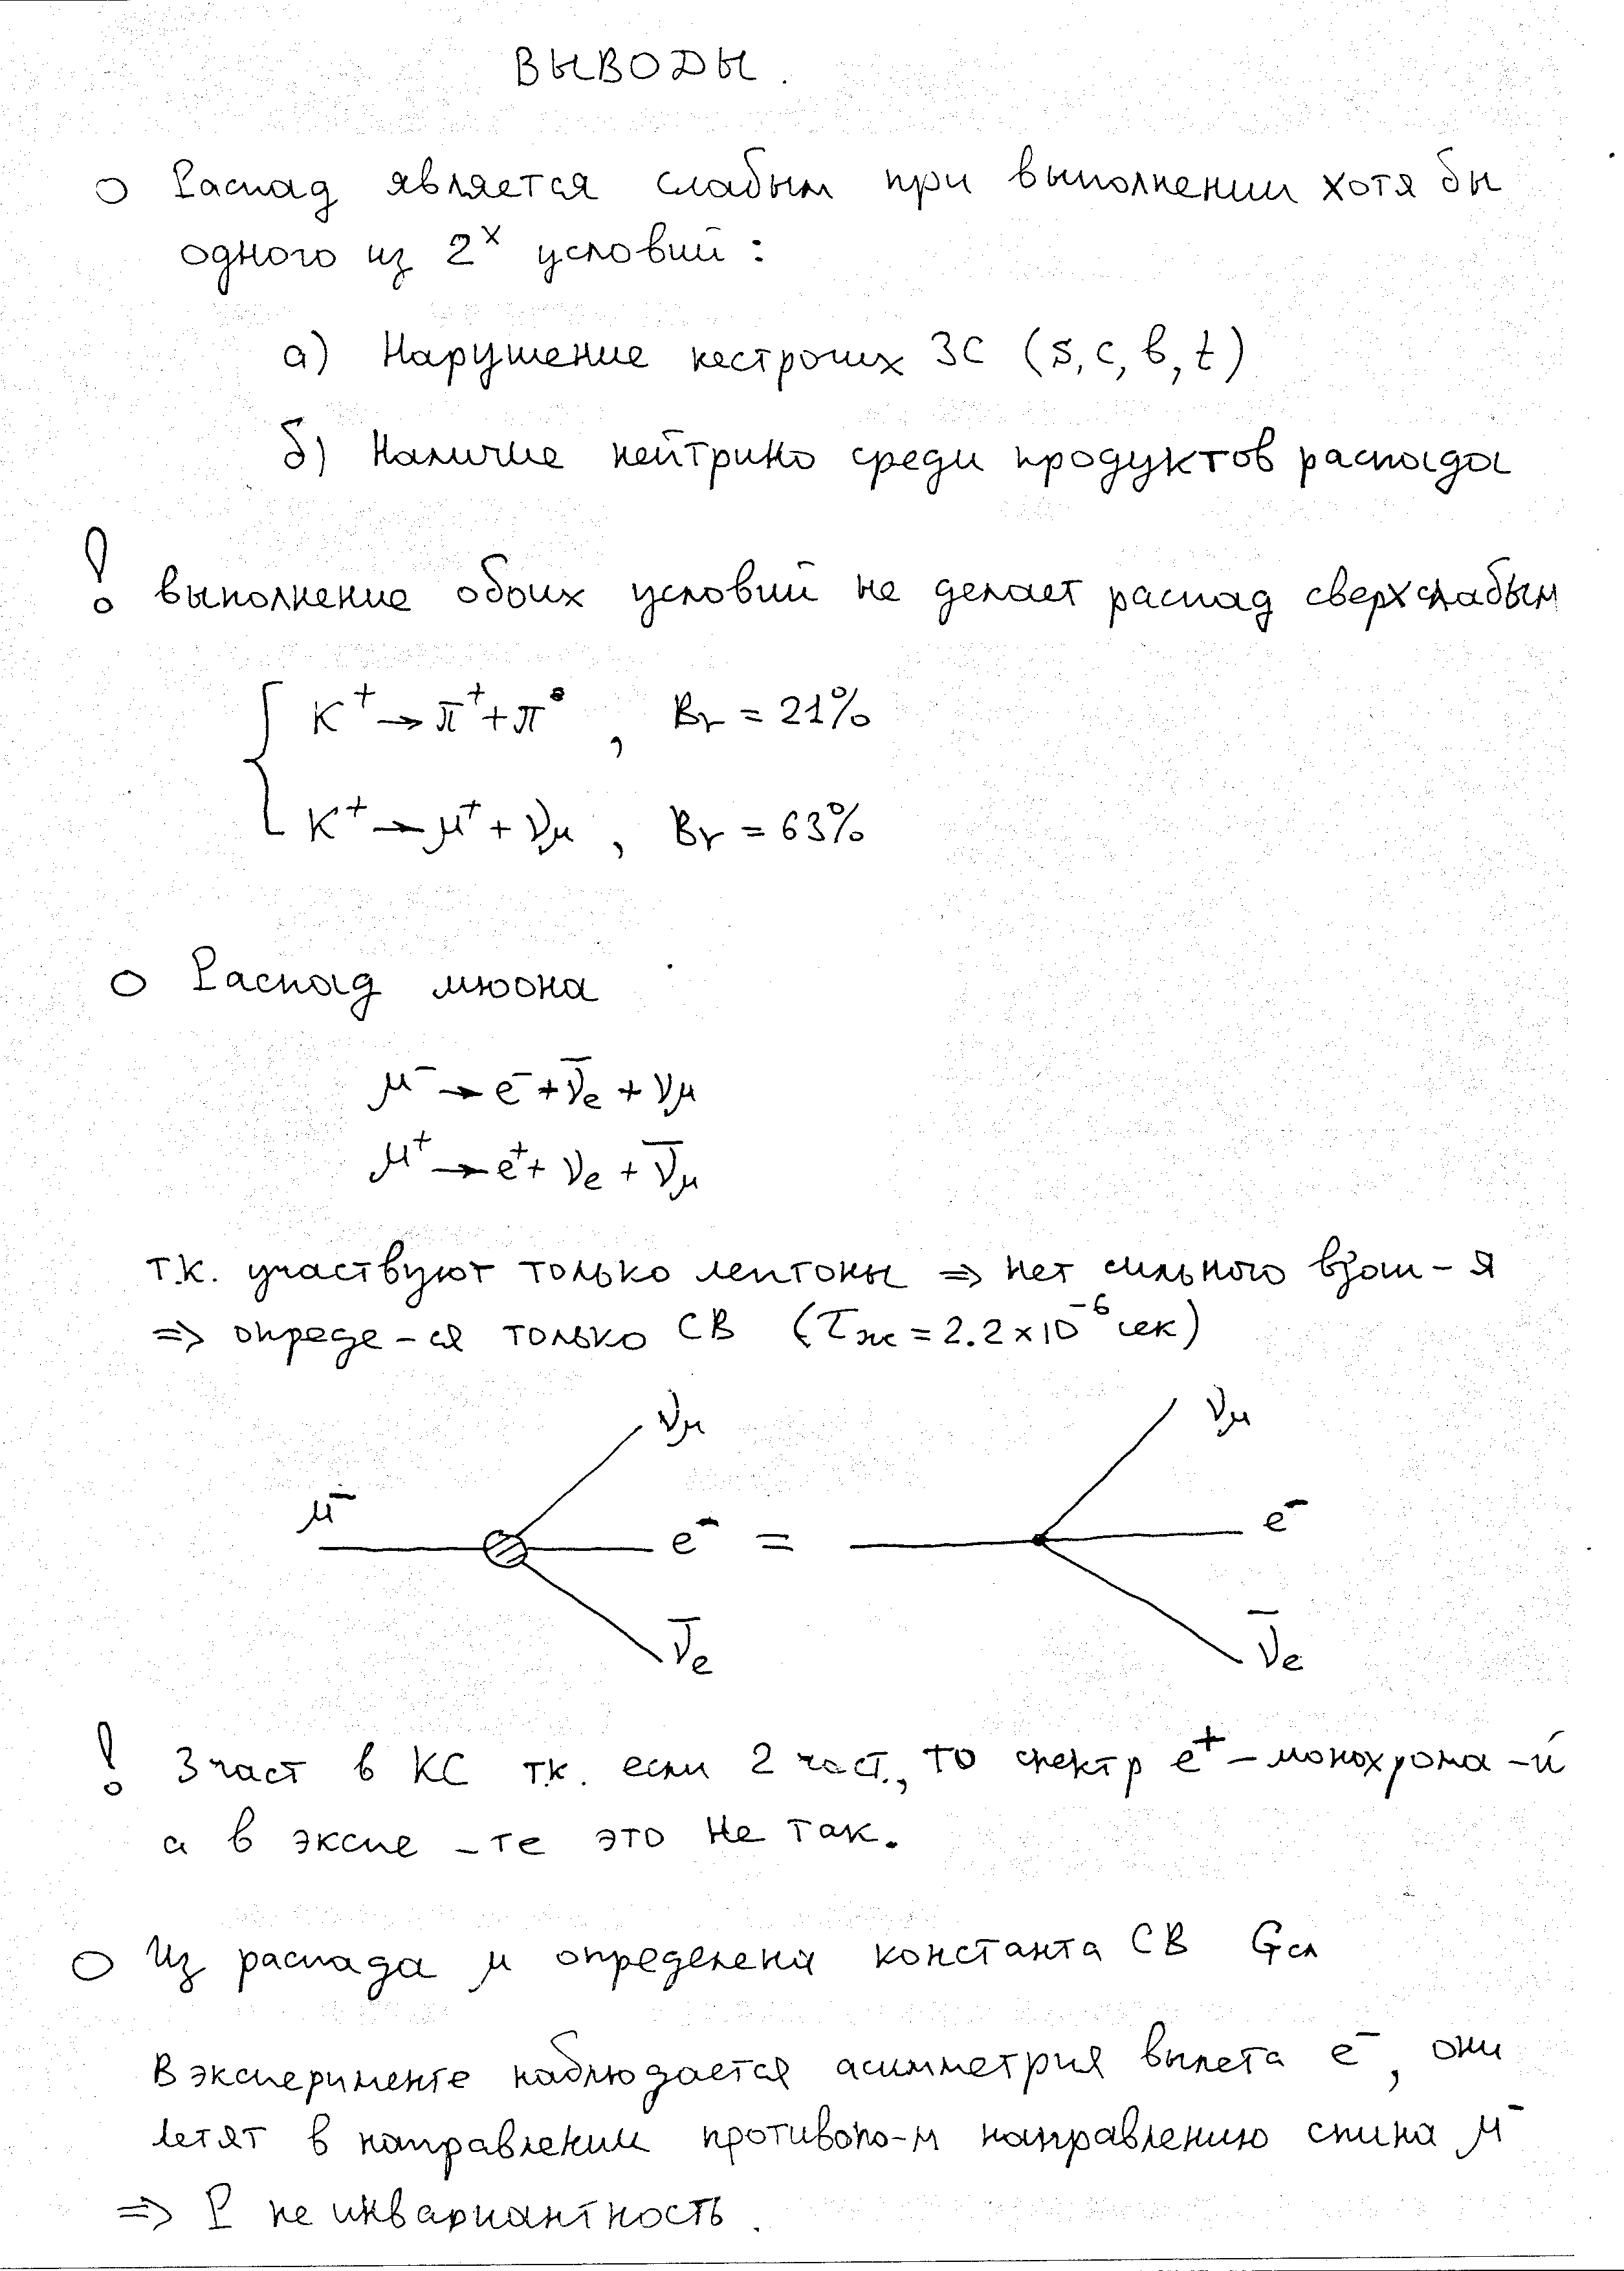 ВЫВОДЫ.
○ Распад является слабым при выполнении хотя бы
одного из 2ˣ условий:
а) Нарушение нестрогих ЗС (s, c, b, t)
б) Наличие нейтрино среди продуктов распада
! выполнение обоих условий не делает распад сверхслабым
K⁺ → π⁺ + π⁰ , Br = 21%
K⁺ → μ⁺ + νμ , Br = 63%
○ Распад мюона
μ⁻ → e⁻ + ν̅e + νμ
μ⁺ → e⁺ + νe + ν̅μ
т.к. участвуют только лептоны ⇒ нет сильного взаи-я
⇒ опреде-ся только СВ (τж = 2.2 × 10⁻⁶ сек)
νμ νμ
μ⁻ e⁻ = e⁻
ν̅e ν̅e
! 3 част в КС т.к. если 2 част., то спектр e⁺ - монохрома-й
а в экспе-те это не так.
○ Из распада μ определена константа СВ Gсл
В эксперименте наблюдается асимметрия вылета e⁻, они
летят в направлении противопо-м направлению спина μ⁻
⇒ P не инвариантность.